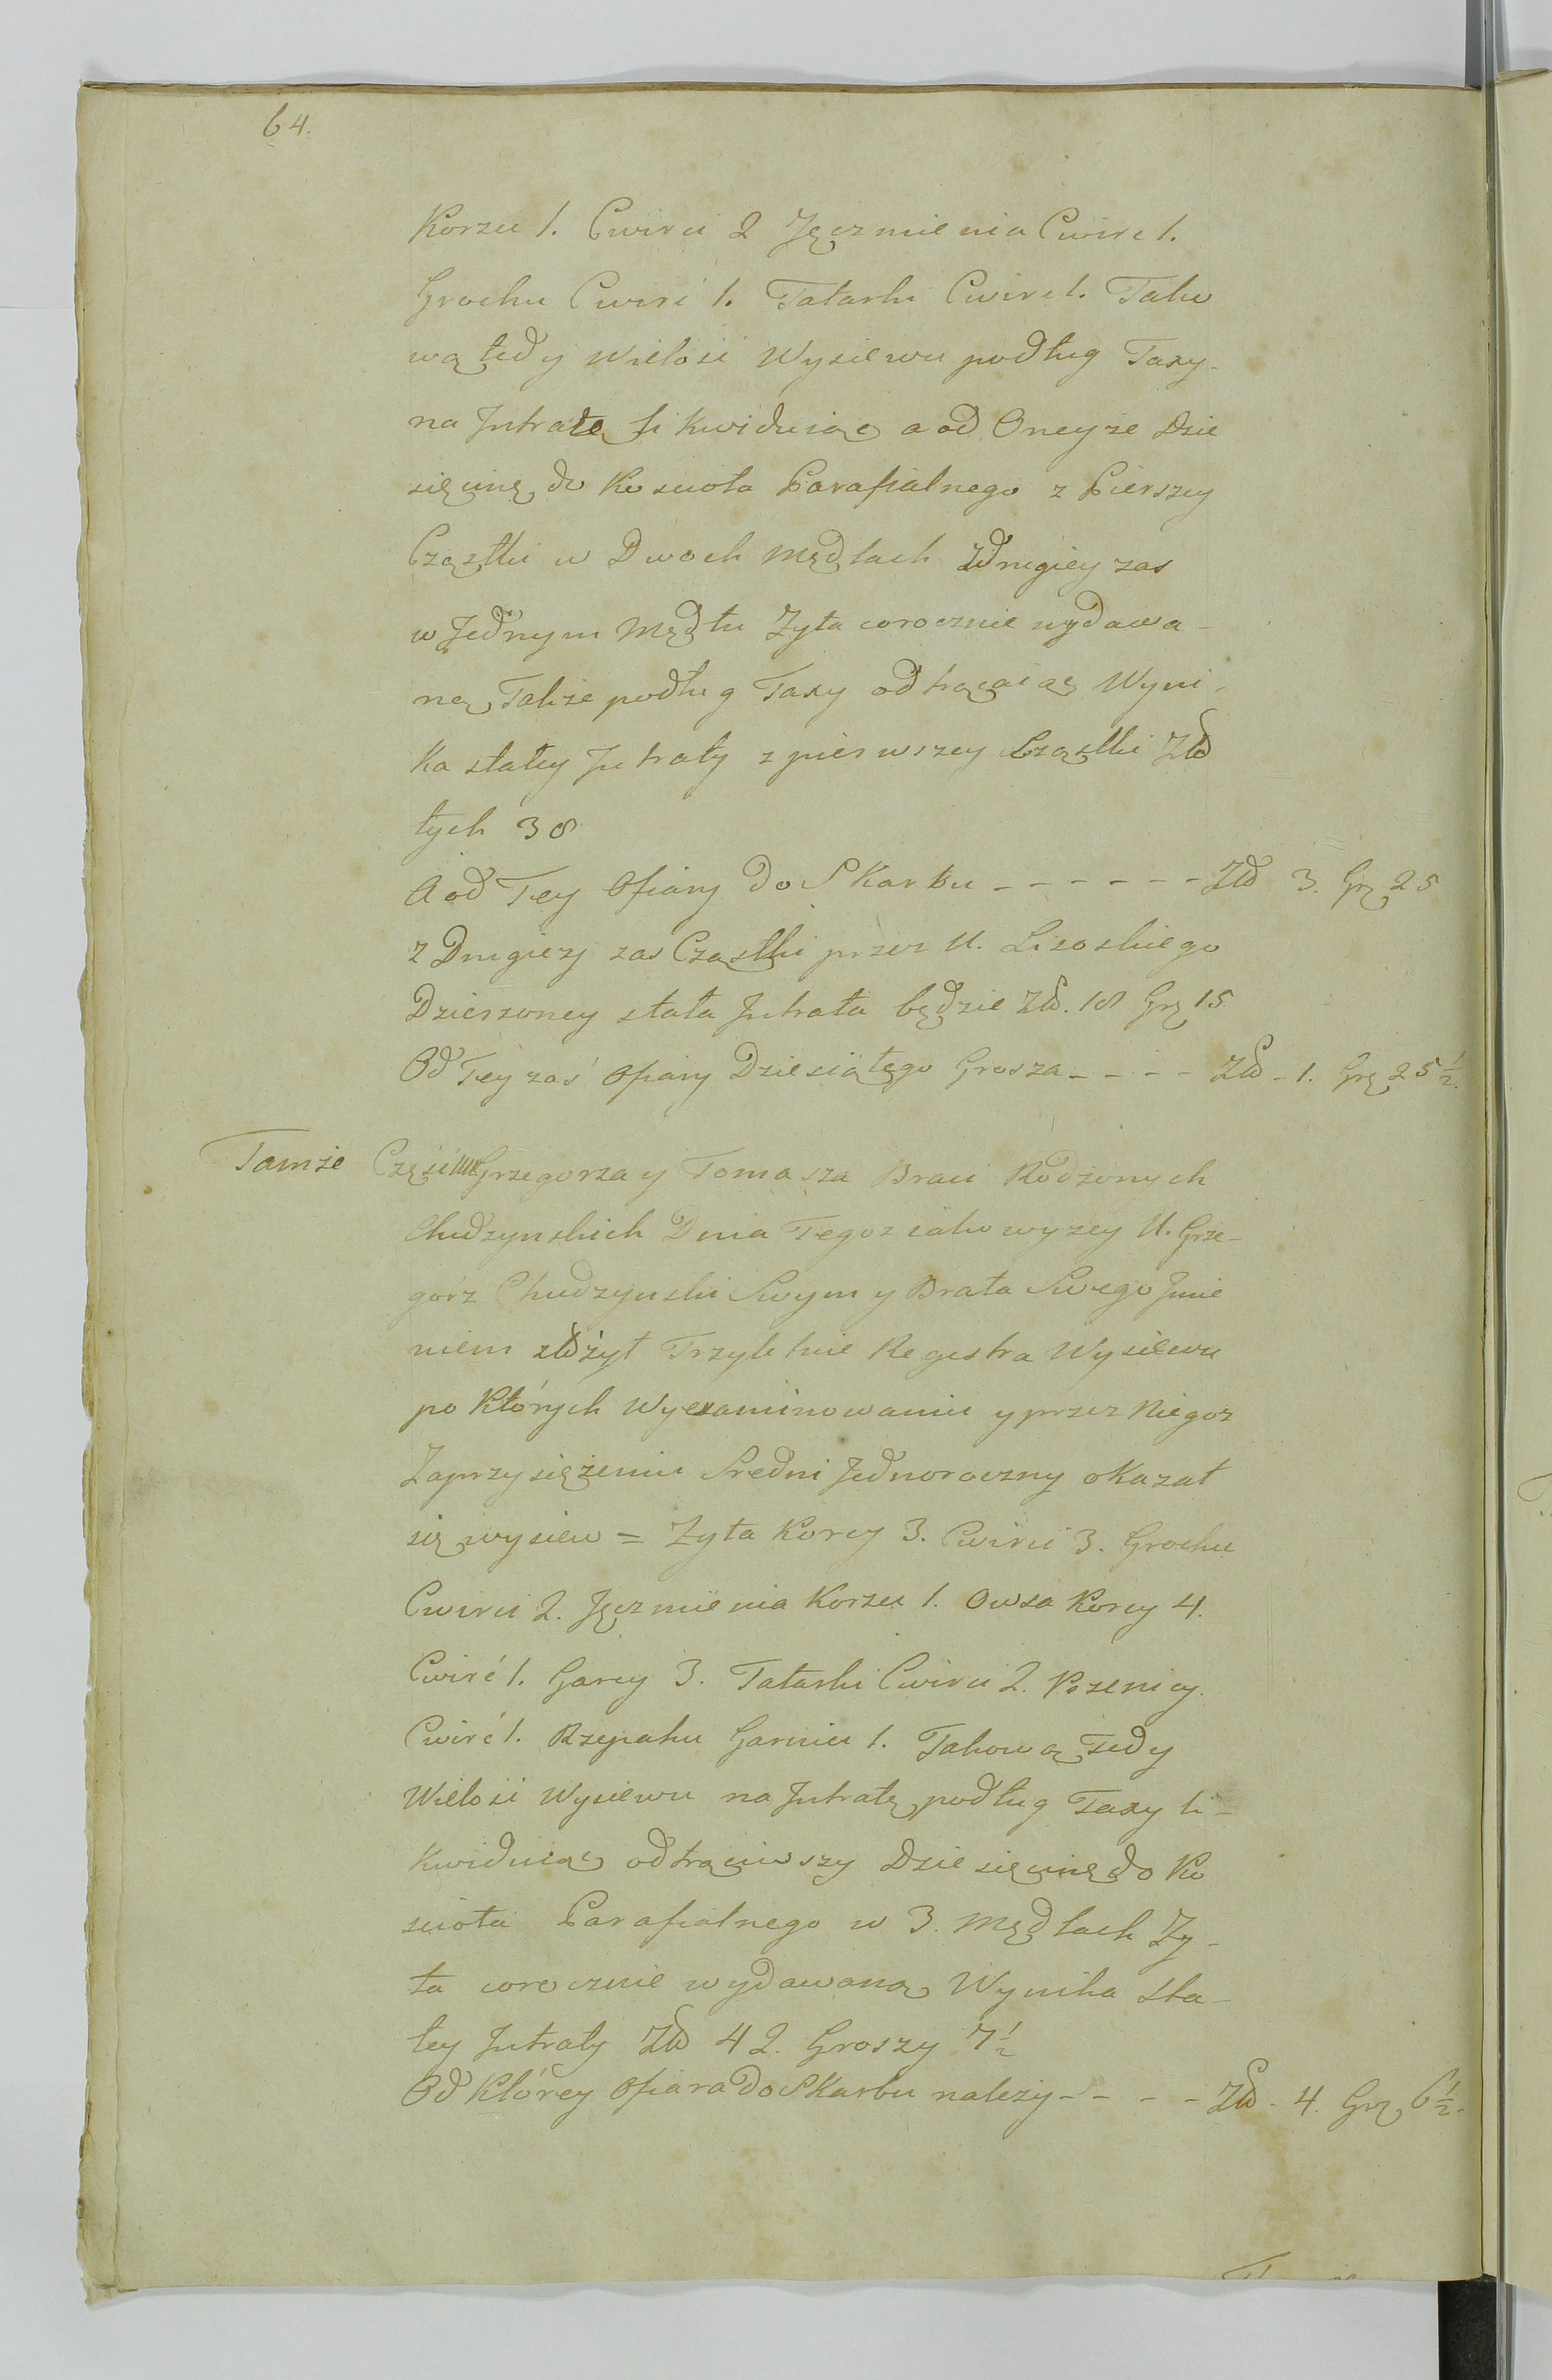 64.
Korzu 1. Cwirci 2 Jęczmienia Cwirc 1.
Grochu Cwirć 1. Tatarki Cwirc 1. Tako
wą tedy Wielość Wysiewu podług Taxy
na Jntratę likwiduiąc a od Oneyże Dzie
sięcinę do Koscioła Parafialnego z Pierszey
Cząstki w Dwoch Mędlach z Drugiey zas
w Jednym Mędlu Zyta corocznie wydawa-
ną Takze podług Taxy odtrącaiąc Wyni-
ka stałey Jntraty z pierwszey Cząstki Zło
tych 38
A od Tey Ofiary do Skarbu - - - - - - Zło 3. Grz 25
z Drugiezj zas Cząstki przez U. Lisoskiego
Dzierzoney stała Jntrata będzie Zło. 18 Grz 15
Od Tey zaś Ofiary Dziesiątego Grosza - - - - Zło - 1. Grz 25 1/2.
Tamże Część Grzegorza y Tomasza Braci Rodzonych
Chudzynskich Dnia Tegoz iako wyzey U. Grze-
gorz Chudzynski Swym y Brata Swego Jmie
niem złożył Trzyletnie Regestra Wysiewu
po Których Wyexaminowaniu y przez Niegoz
Zaprzysiężeniu Sredni Jednoroczny okazał
się wysiew = Zyta Korcy 3. Cwirci 3. Grochu
Cwirci 2. Jęczmienia Korzec 1. Owsa Korcy 4.
Cwirć 1. Garcy 3. Tatarki Cwirci 2. Pszenicy
Cwirć 1. Rzepaku Garniec 1. Takową Tedy
Wielość Wysiewu na Jntratę podług Taxy li-
kwiduiąc odtrąciwszy Dziesięcinę do Ko
scioła Parafialnego w 3. Mędlach Zy-
ta corocznie wydawaną Wynika sta-
łey Jntraty Zło 42. Groszy 7 1/2
Od Którey Ofiara do Skarbu nalezy - - - - Zło - 4. Grz 6 1/2.